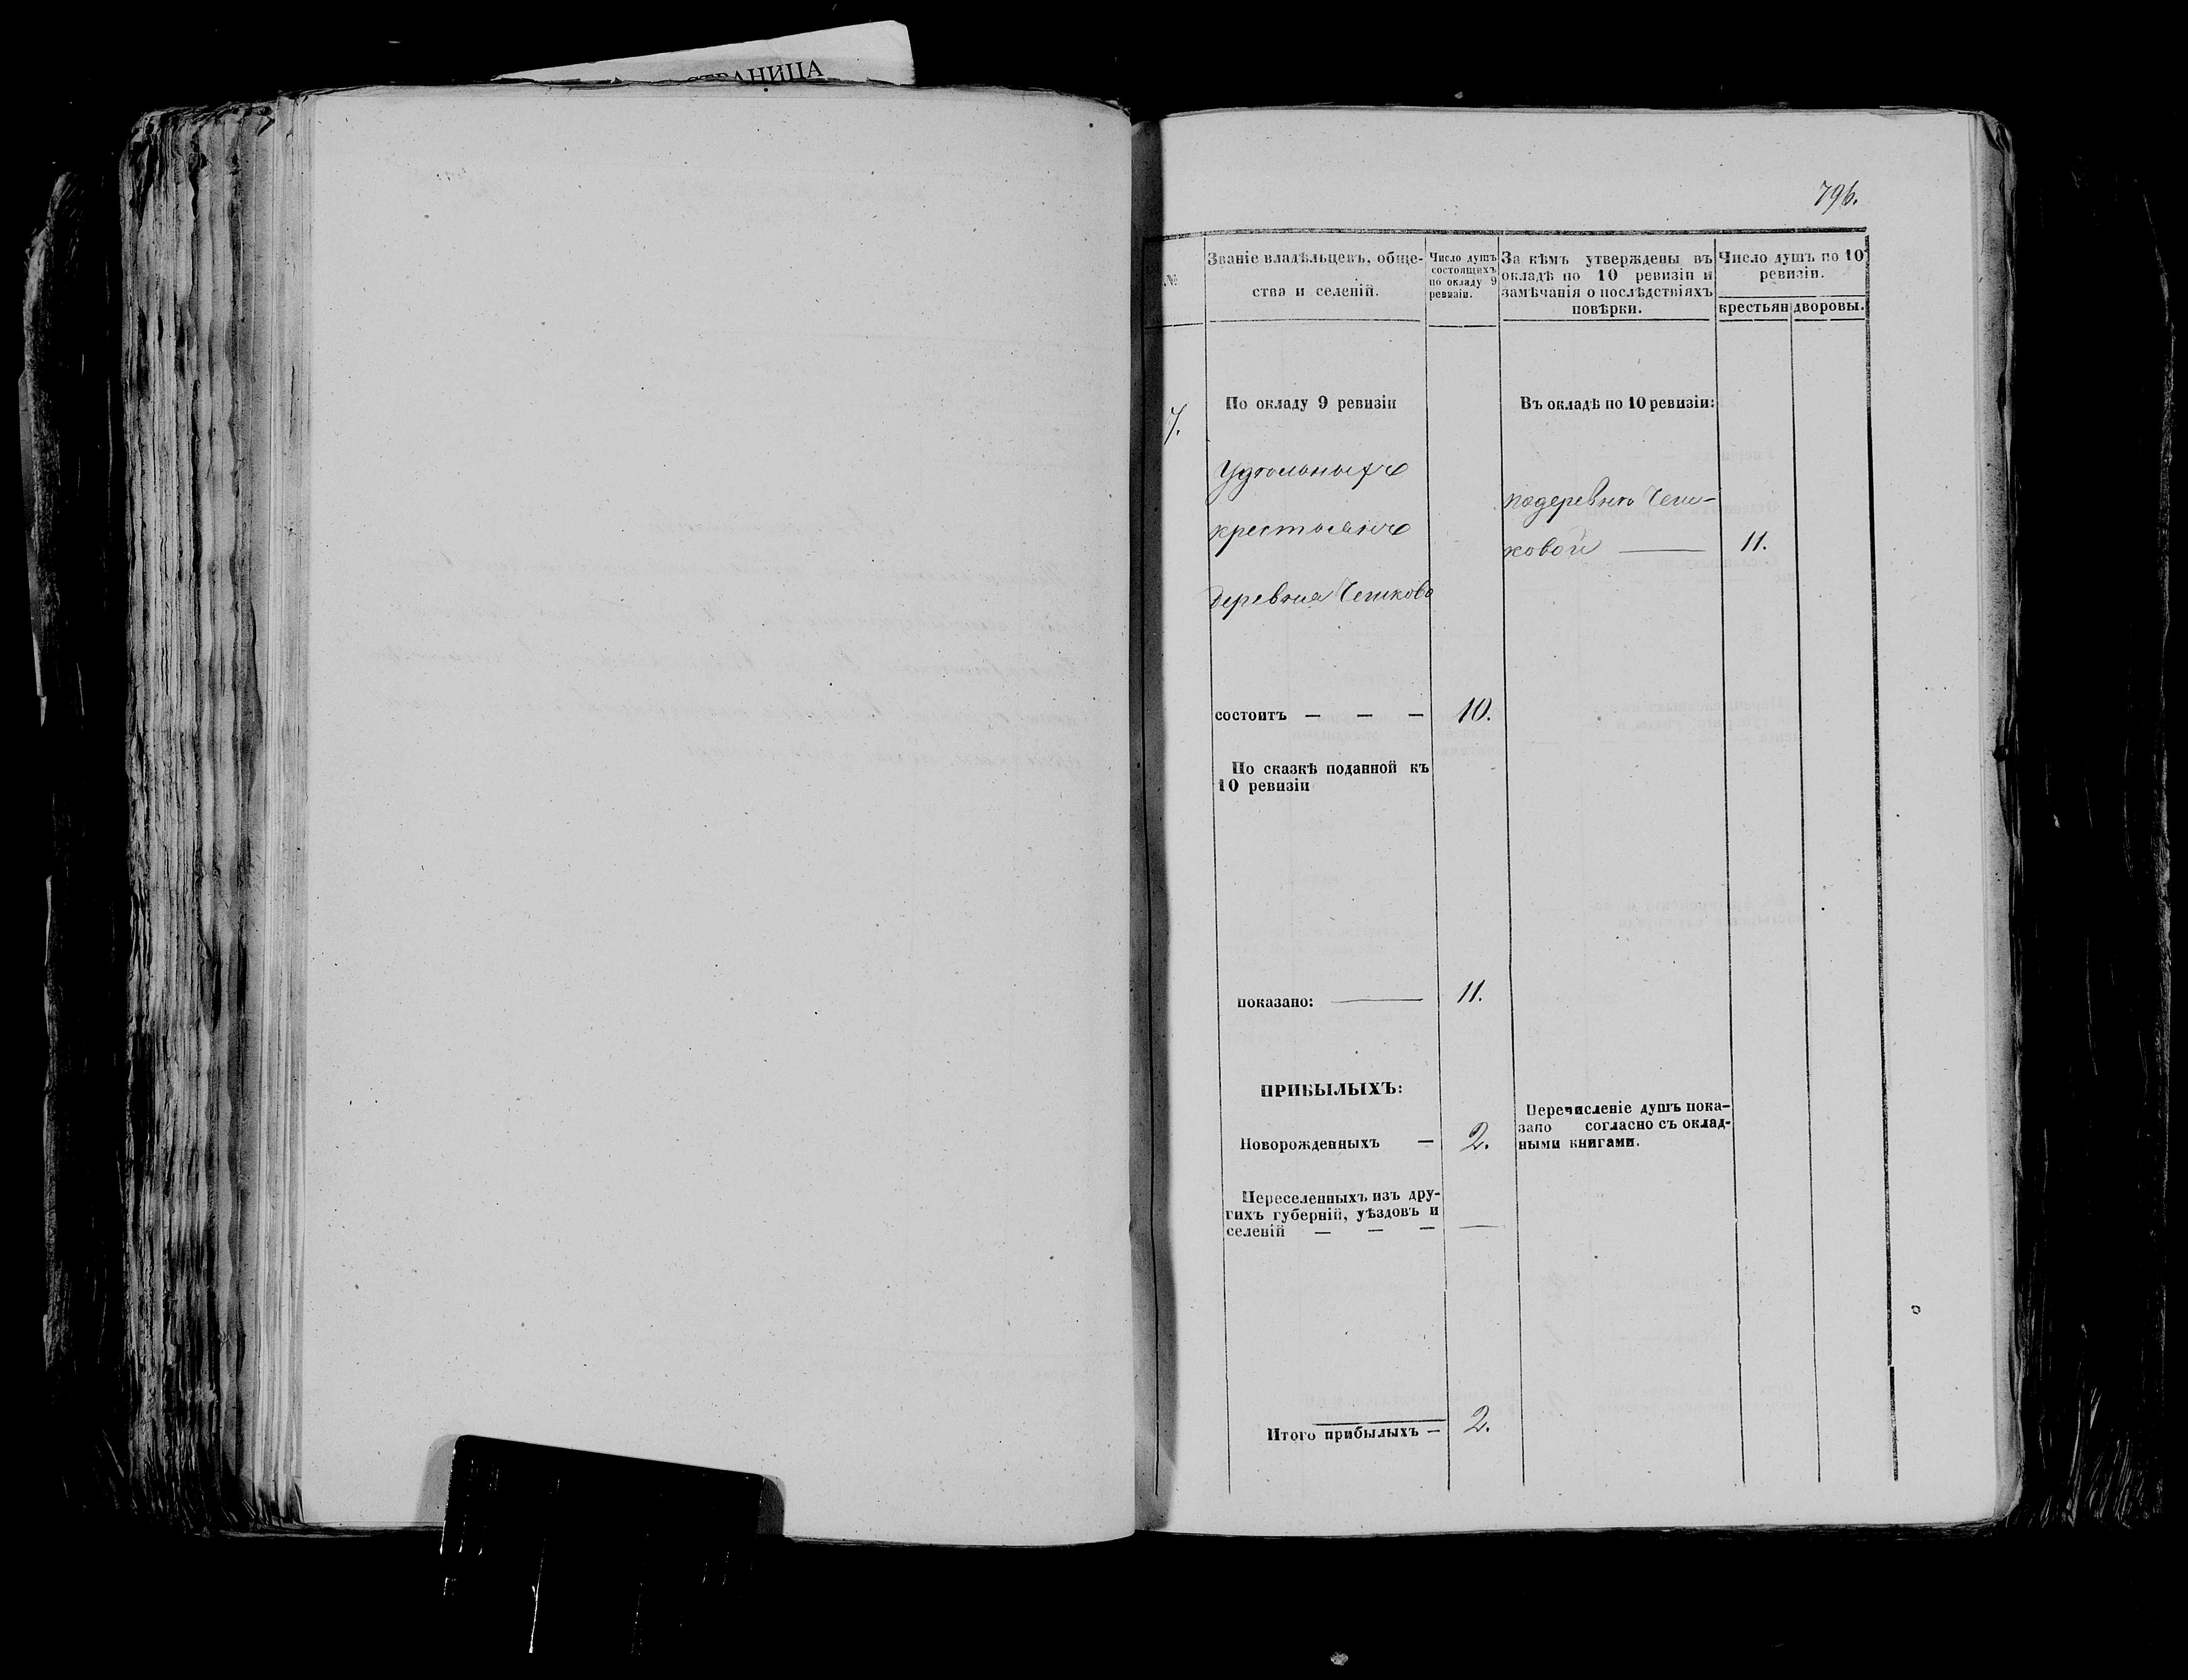 СТРАНИЦА
796.
№
Званіе владѣльцевъ, обще-
ства и селеній.
Число душъ
состоящихъ
по окладу 9
ревизіи.
За кѣмъ утверждены въ
окладѣ по 10 ревизіи и
замѣчанія о послѣдствіяхъ
повѣрки.
Число душъ по 10
ревизіи.
крестьян
дворовы.
7.
По окладу 9 ревизіи
Въ окладѣ по 10 ревизіи:
Удѣльныхъ
крестьянъ
деревня Чешкова
подеревнѣ Чеш-
ковой — 11.
состоитъ — — — 10.
По сказкѣ поданной къ
10 ревизіи
показано: — 11.
ПРИБЫЛЫХЪ:
Новорожденныхъ — 2.
Перечисленіе душъ пока-
зано согласно съ оклад-
ными книгами.
Переселенныхъ изъ дру-
гихъ губерній, уѣздовъ и
селеній — — — —
Итого прибылыхъ — 2.